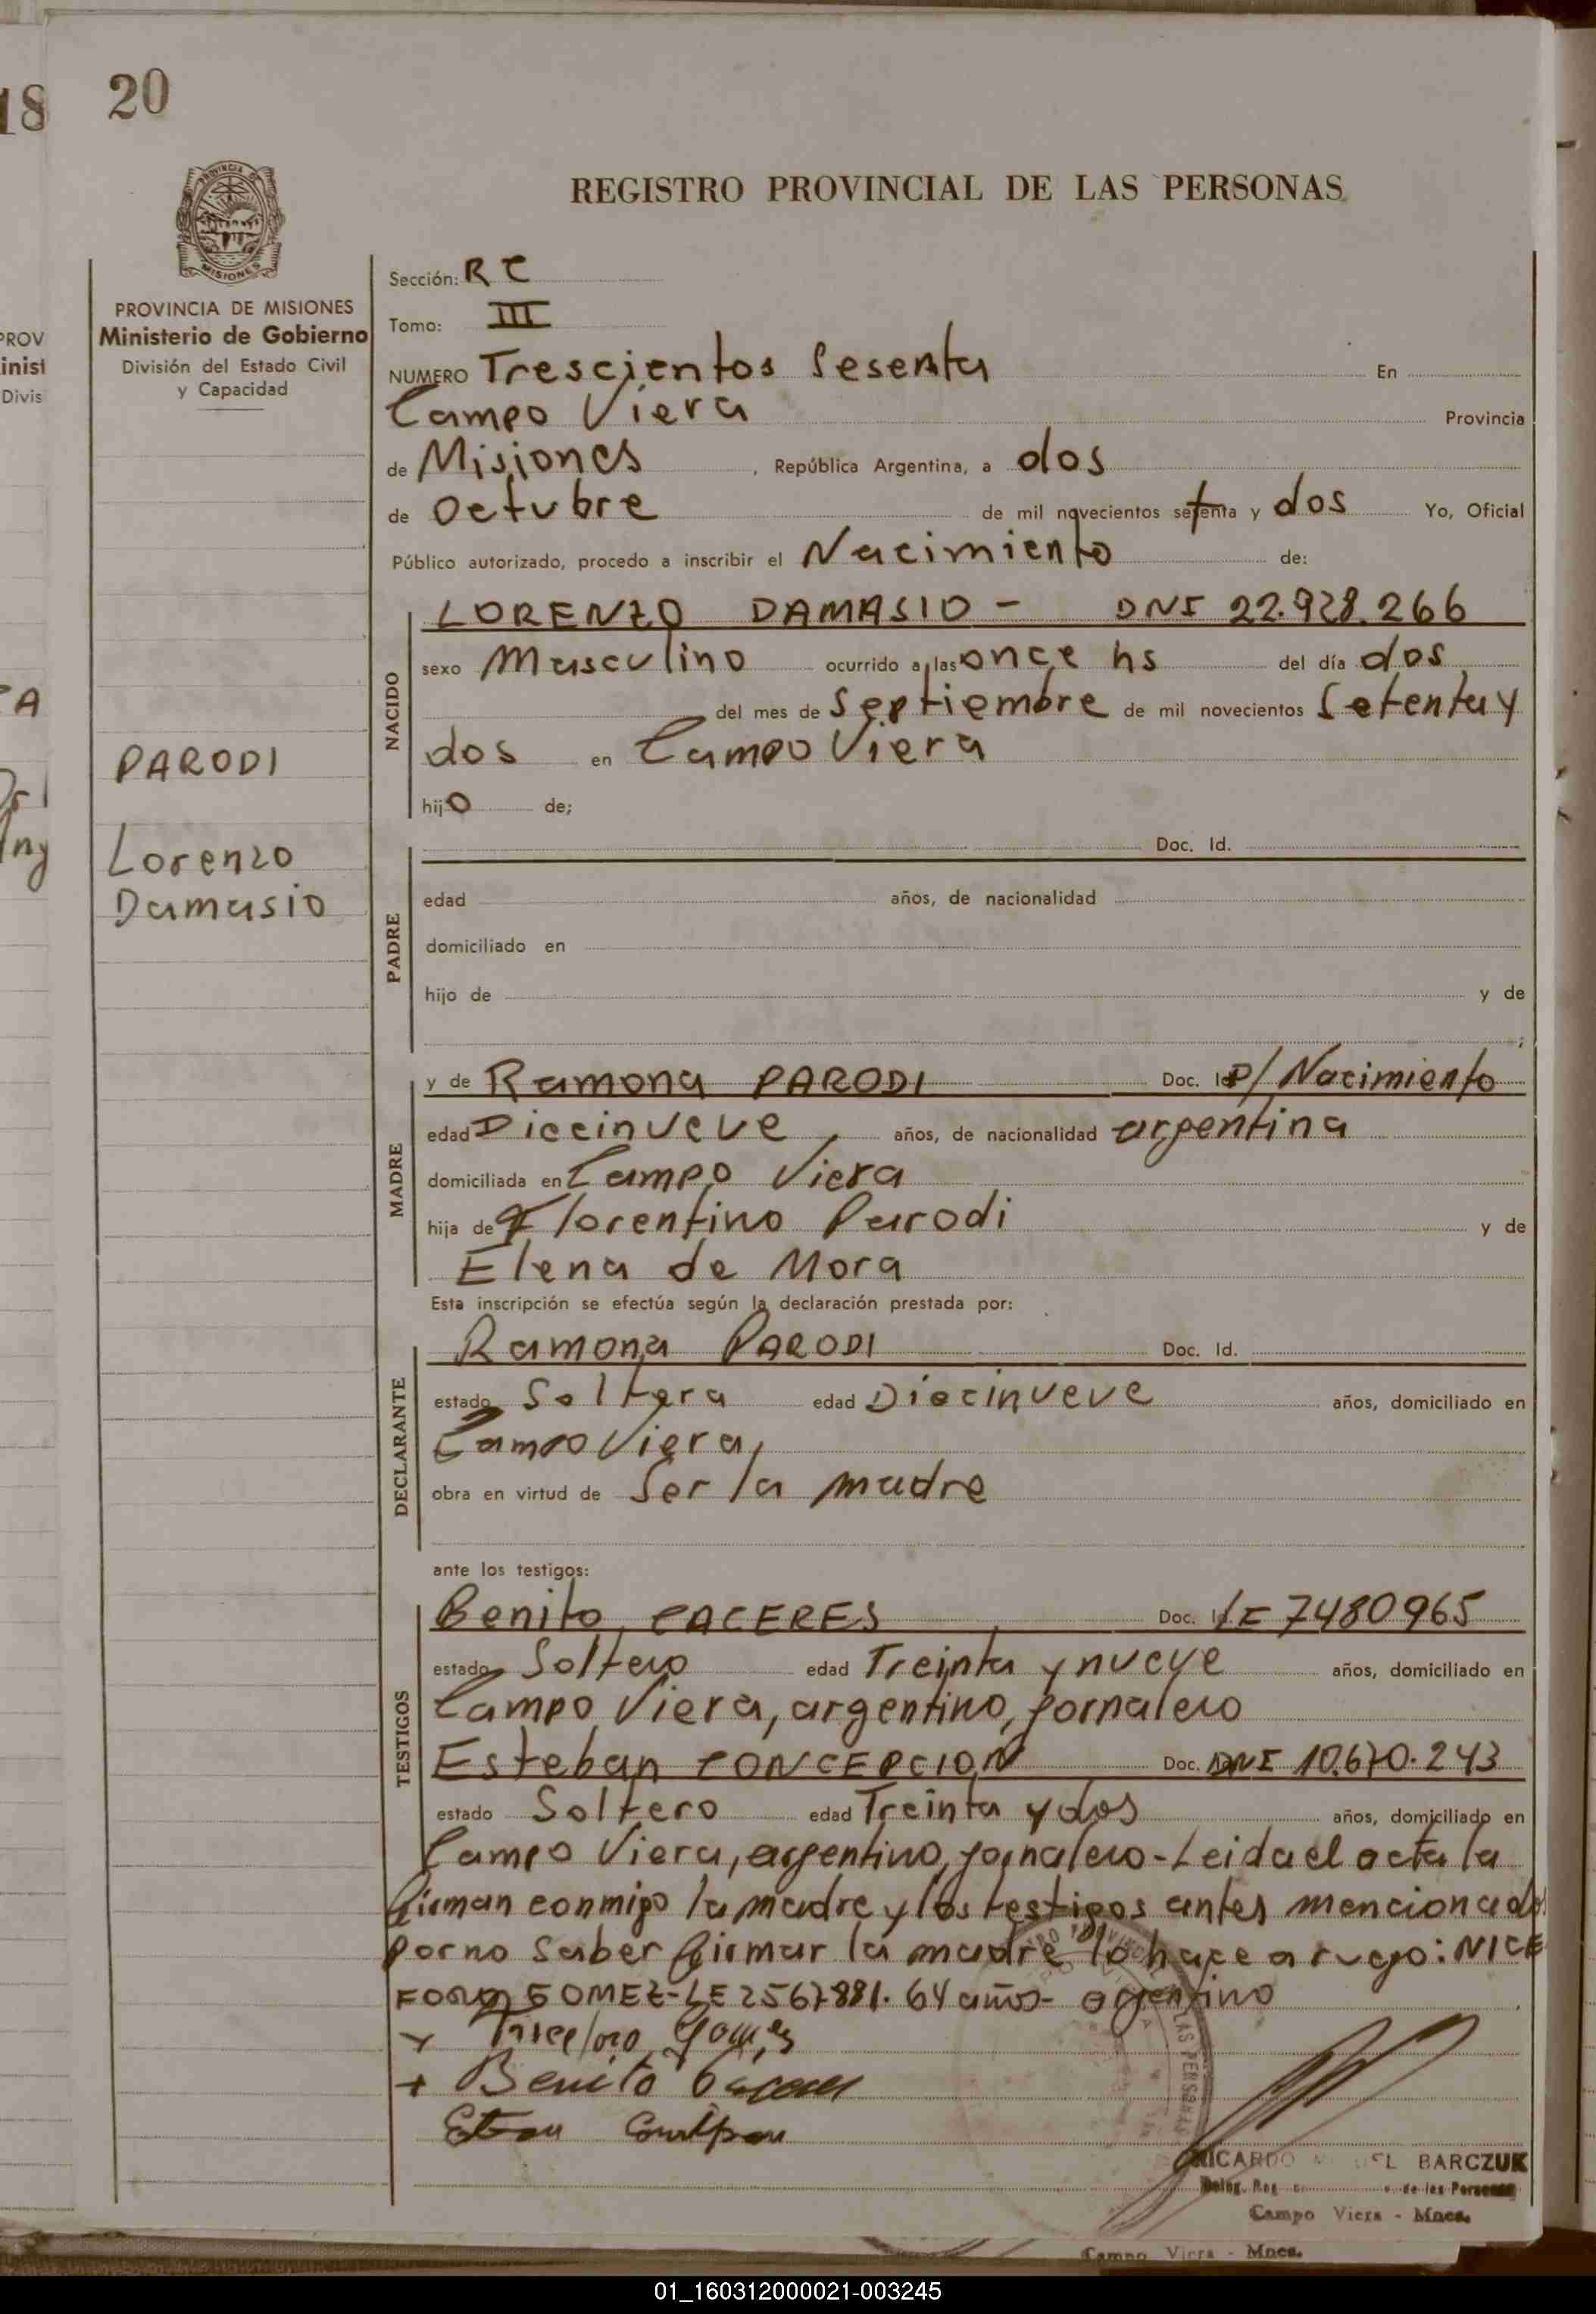 18
20
REGISTRO PROVINCIAL DE LAS PERSONAS
PROVINCIA DE
MISIONES
PROVINCIA DE MISIONES
Ministerio de Gobierno
División del Estado Civil
y Capacidad
PROV
inist
Divis
Sección: R C
Tomo: III
NUMERO Trescientos Sesenta En
Campo Viera Provincia
de Misiones, República Argentina, a dos
de Octubre de mil novecientos setenta y dos Yo, Oficial
Público autorizado, procedo a inscribir el Nacimiento de:
NACIDO
LORENZO DAMASIO - DNI 22.928.266
sexo Masculino ocurrido a las once hs del día dos
del mes de Septiembre de mil novecientos Setenta y
dos en Campo Viera
hijo de;
PARODI
Lorenzo
Damasio
PADRE
Doc. Id.
edad años, de nacionalidad
domiciliado en
hijo de y de
;
MADRE
y de Ramona PARODI Doc. Id. P/ Nacimiento
edad Diecinueve, años, de nacionalidad argentina
domiciliada en Campo Viera
hija de Florentino Parodi y de
Elena de Mora
Esta inscripción se efectúa según la declaración prestada por:
DECLARANTE
Ramona PARODI Doc. Id.
estado Soltera edad Diecinueve años, domiciliado en
Campo Viera,
obra en virtud de Ser la madre
ante los testigos:
TESTIGOS
Benito CACERES Doc. Id. LE 7480965
estado Soltero edad Treinta y nueve años, domiciliado en
Campo Viera, argentino, jornalero
Esteban CONCEPCION Doc. DNI 10.670.243
estado Soltero edad Treinta y dos años, domiciliado en
Campo Viera, argentino, jornalero - Leida el acta la
firman conmigo la madre y los testigos antes mencionados
por no saber firmar la madre lo hace a ruego: NICE
FORO GOMEZ - LE 2567881. 64 años - argentino
Benito
RICARDO BARCZUK
Deleg. Reg de las Personas
Campo Viera - Mnes.
Campo Viera - Mnes.
01_160312000021-003245